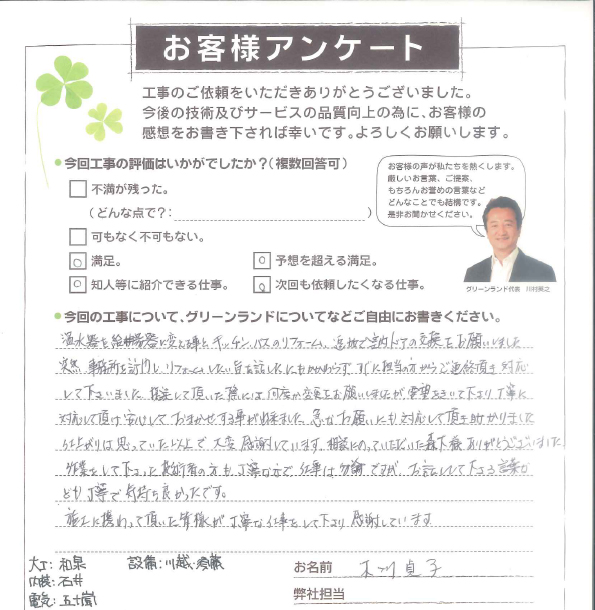 お客様アンケート
工事のご依頼をいただきありがとうございました。
今後の技術及びサービスの品質向上の為に、お客様の
感想をお書き下されば幸いです。よろしくお願いします。
●今回工事の評価はいかがでしたか?(複数回答可)
不満が残った。
(どんな点で?: )
可もなく不可もない。
○ 満足。
○ 予想を超える満足。
○ 知人等に紹介できる仕事。
○ 次回も依頼したくなる仕事。
お客様の声が私たちを熱くします。
厳しいお言葉、ご提案、
もちろんお誉めの言葉など
どんなことでも結構です。
是非お聞かせください。
グリーンランド代表
●今回の工事について、グリーンランドについてなどご自由にお書きください。
温水器を給湯器に変える事とキッチン、バスのリフォーム、追加で室内ドアの交換をお願いしました
突然、事務所を訪ね、リフォームしたい旨を話したにもかかわらず、すぐに担当の方からご連絡頂き対応
して下さいました。提案して頂いた際には何度か変更もお願いしましたが要望をきいて下さり丁寧に
対応して頂け安心しておまかせする事が出来ました。急なお願いにも対応して頂き助かりました
仕上がりは思っていた以上で大変感謝しています。相談にのっていただいた森下様ありがとうございました
作業をして下さった業者の方も丁寧な方で仕事は勿論ですが、お話しして下さる言葉が
とても丁寧で気持ち良かったです。
施工に携わって頂いた皆様が丁寧な仕事をして下さり感謝しています
大工:和泉
設備:川越・斉藤
内装:石井
電気:五十嵐
お名前 木川貞子
弊社担当